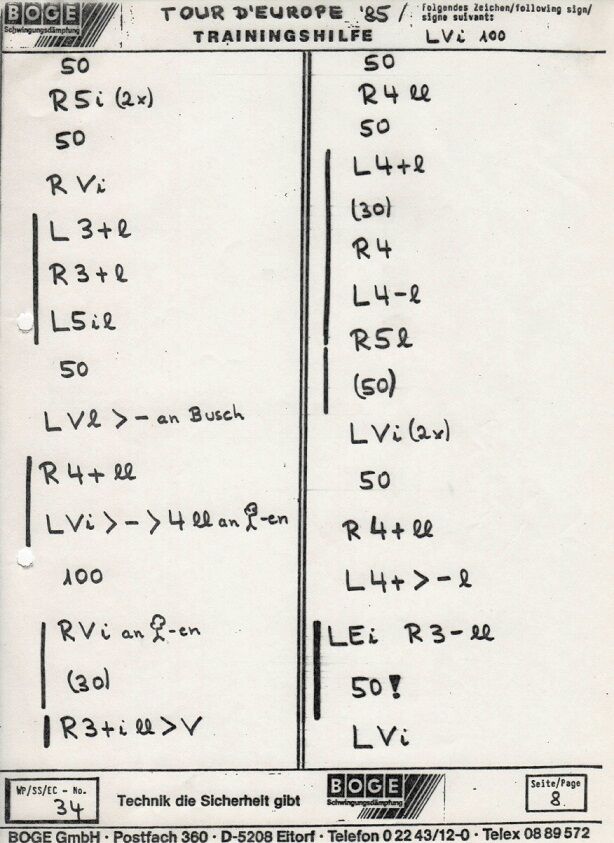 BOGE
Schwingungsdämpfung
TOUR D'EUROPE '85 /
TRAININGSHILFE
folgendes Zeichen/following sign/
signe suivant:
LVi 100
50
R5i (2x)
50
RVi
L3+l
R3+l
L5il
50
LVl >- an Busch
R4+ll
LVi>->4ll an -en
100
RVi an -en
(30)
R3+ill>V
50
R4ll
50
L4+l
(30)
R4
L4-l
R5l
(50)
LVi(2x)
50
R4+ll
L4+>-l
LEi R3-ll
50!
LVi
WP/SS/EC - No.
34
Technik die Sicherheit gibt
BOGE
Schwingungsdämpfung
Seite/Page
8
BOGE GmbH · Postfach 360 · D-5208 Eitorf · Telefon 0 22 43/12-0 · Telex 08 89 572